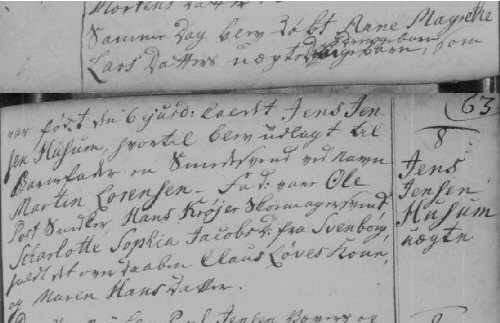 Mortens Datter.
Samme Dag blev døbt Anne Magrethe
Lars Datters uægte Drengebarn, som
var født den 6 ejusd: kaldt Jens Jen-
sen Husum, hvortil blev udlagt til
Barnefader en Smedesvend ved Navn
Martin Lorensen. Fad: vare Ole
Post Smeder, Hans Krøjer Skomagersvend,
Scharlotte Sophia Jacobsd: fra Svenborg,
holdt det over daaben Claus Løves Kone,
og Maren Hans Datter.
63
8
Jens
Jensen
Husum
uægte